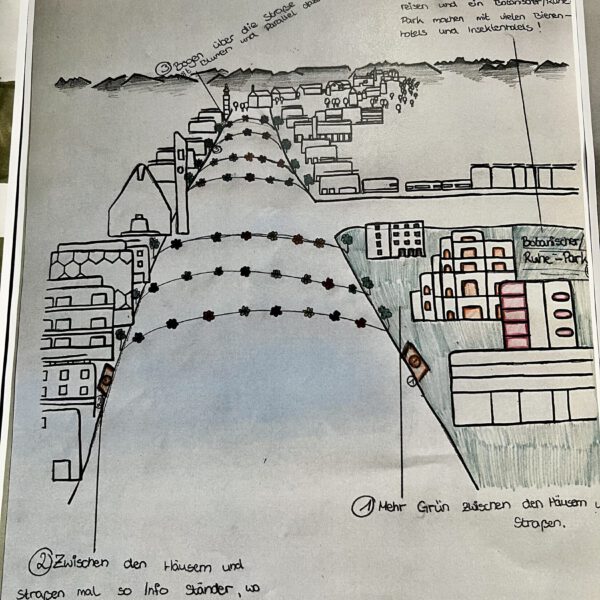 ③ Bogen über die Straße
mit Blumen und Parallel dazu
reisen und ein Botanischer/Ruhe
Park machen mit vielen Bienen-
hotels und Insektenhotels!
Botanischer/
Ruhe-Park
① Mehr Grün zwischen den Häusern u
Straßen.
② Zwischen den Häusern und
Straßen mal so Info Ständer, wo